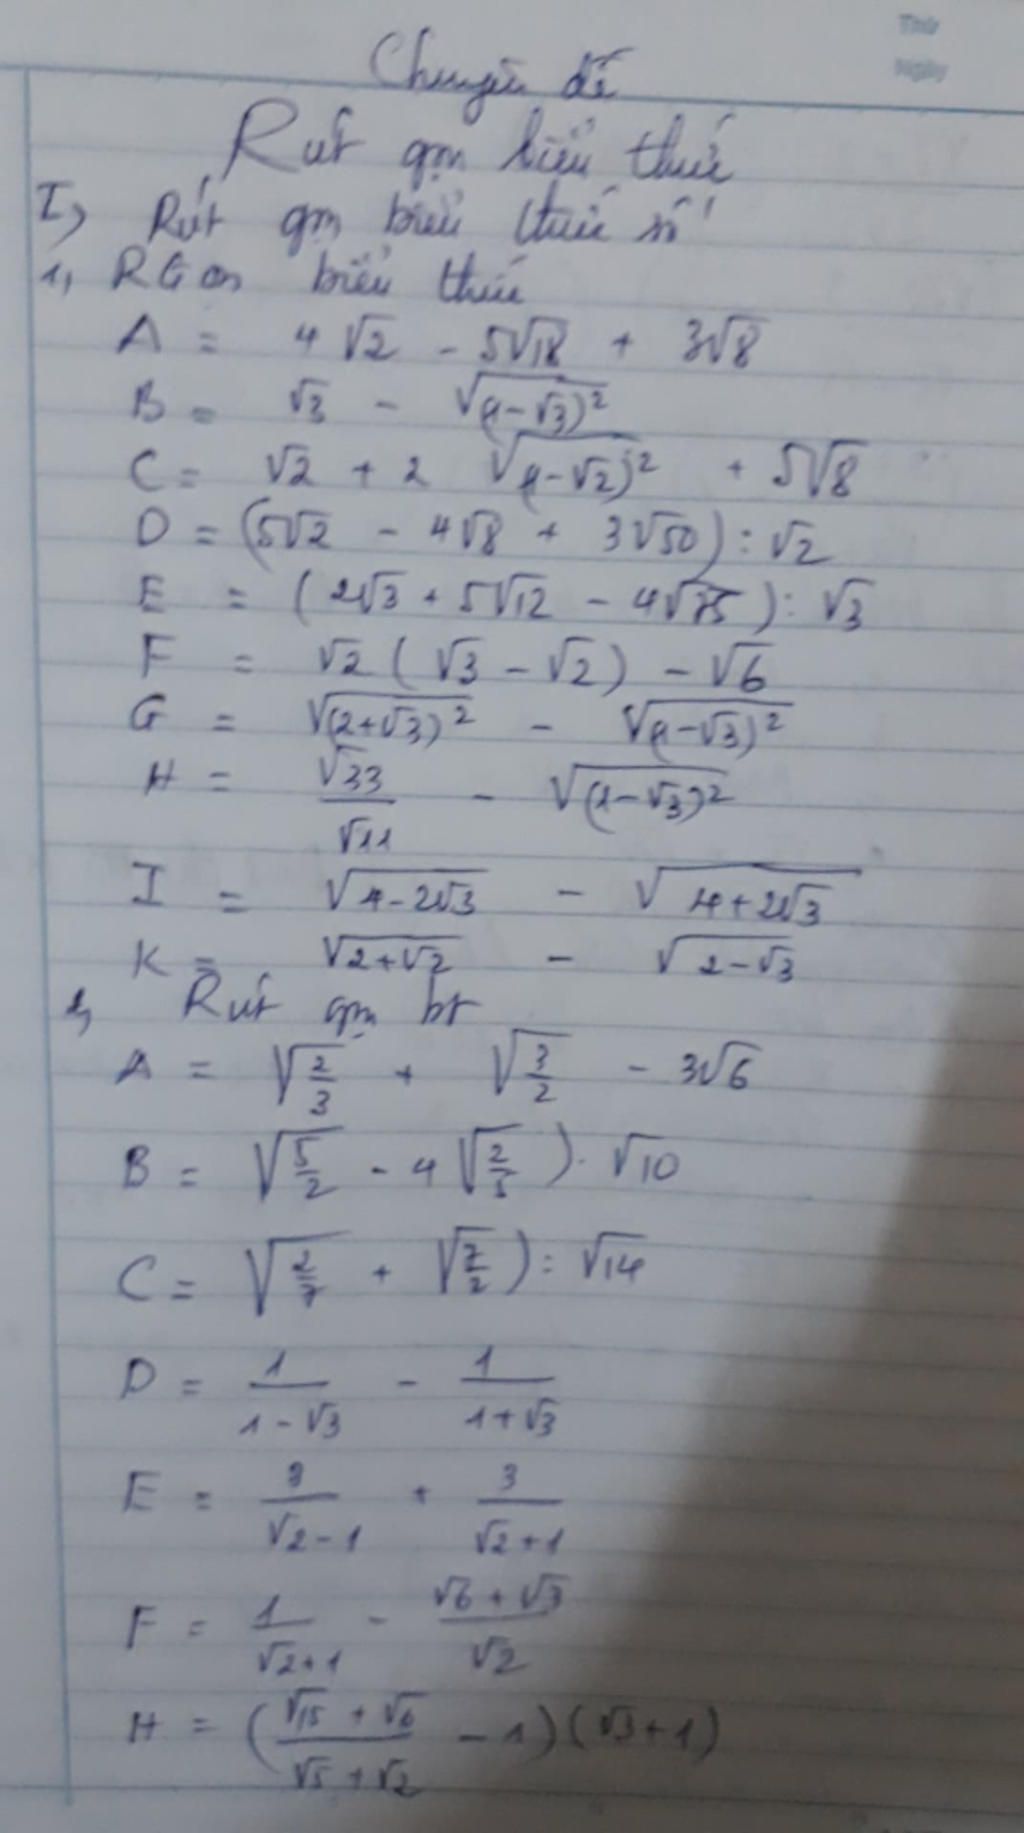 Thứ
Ngày
Chuyên đề
Rút gọn biểu thức
I, Rút gọn biểu thức số
1, RG các biểu thức
A = 4√2 - 5√18 + 3√8
B = √3 - √(1-√3)²
C = √2 + 2 √(1-√2)² + 5√8
D = (5√2 - 4√8 + 3√50) : √2
E = (2√3 + 5√12 - 4√75) : √3
F = √2 (√3 - √2) - √6
G = √(2+√3)² - √(1-√3)²
H = √33/√11 - √(1-√3)²
I = √(4-2√3) - √(4+2√3)
K = √(2+√2) - √(2-√3)
2, Rút gọn bt
A = √(2/3) + √(3/2) - 3√6
B = √(5/2) - 4√(2/5) ) . √10
C = √(2/7) + √(7/2) ) : √14
D = 1/(1-√3) - 1/(1+√3)
E = 3/(√2-1) + 3/(√2+1)
F = 1/(√2+1) - (√6+√3)/√2
H = ((√15+√6)/(√5+√2) - 1)(√3+1)